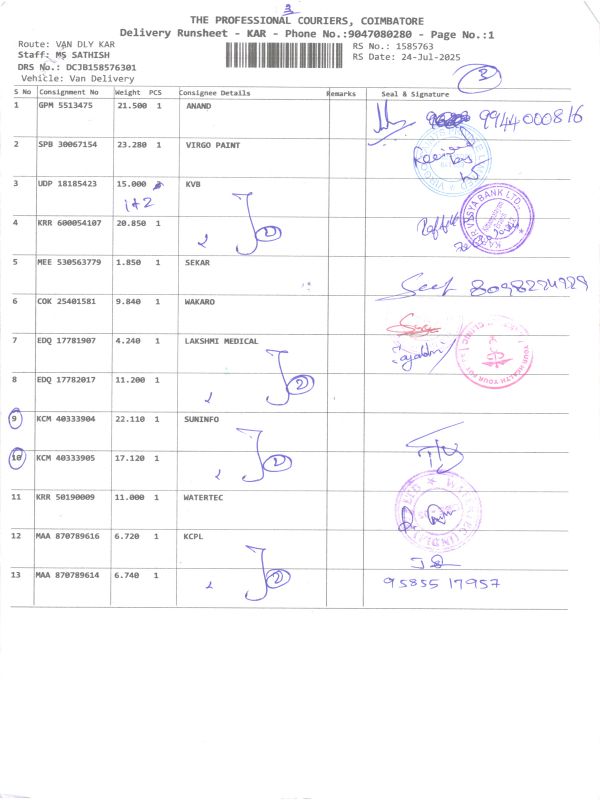 3
THE PROFESSIONAL COURIERS, COIMBATORE
Delivery Runsheet - KAR - Phone No.:9047080280 - Page No.:1
Route: VAN DLY KAR
RS No.: 1585763
Staff: MS SATHISH
RS Date: 24-Jul-2025
DRS No.: DCJB158576301
Vehicle: Van Delivery
3
S No Consignment No Weight PCS Consignee Details Remarks Seal & Signature
1 GPM 5513475 21.500 1 ANAND 9944000816
2 SPB 30067154 23.280 1 VIRGO PAINT
3 UDP 18185423 15.000 KVB
1+2
KARUR VYSYA BANK LTD.
4 KRR 600054107 20.850 1 2 2
5 MEE 530563779 1.850 1 SEKAR 8098224929
6 COK 25401581 9.840 1 WAKARO
7 EDQ 17781907 4.240 1 LAKSHMI MEDICAL
YOUR HEALTH YOUR
8 EDQ 17782017 11.200 1 2 2
9 KCM 40333904 22.110 1 SUNINFO
10 KCM 40333905 17.120 1 2 2
11 KRR 50190009 11.000 1 WATERTEC
12 MAA 870789616 6.720 1 KCPL
13 MAA 870789614 6.740 1 2 2 95855 17957